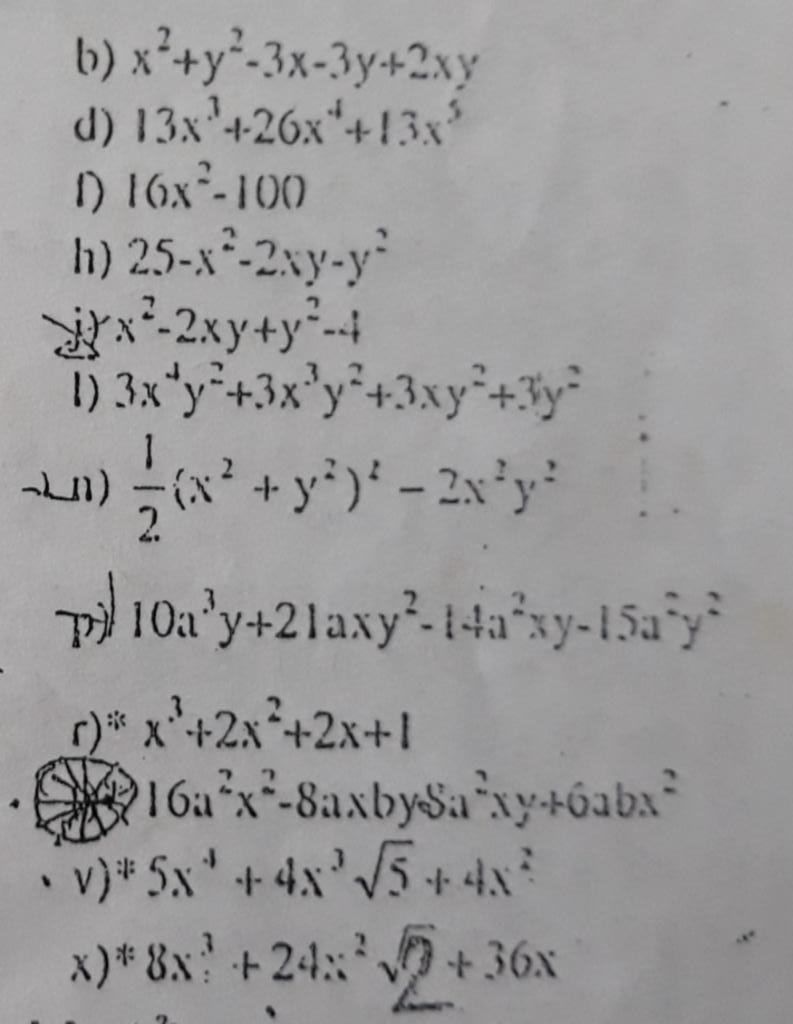 b) x²+y²-3x-3y+2xy
d) 13x³+26x⁴+13x⁵
f) 16x²-100
h) 25-x²-2xy-y²
j) x²-2xy+y²-4
l) 3x⁴y²+3x³y²+3xy²+3y²
n) \frac{1}{2}(x² + y²)² - 2x²y²
p) 10a³y+21axy²-14a²xy-15a²y²
r)* x³+2x²+2x+1
16a²x²-8axby-8a²xy+6abx²
v)* 5x⁴ + 4x³√5 + 4x²
x)* 8x³ + 24x²√2 + 36x